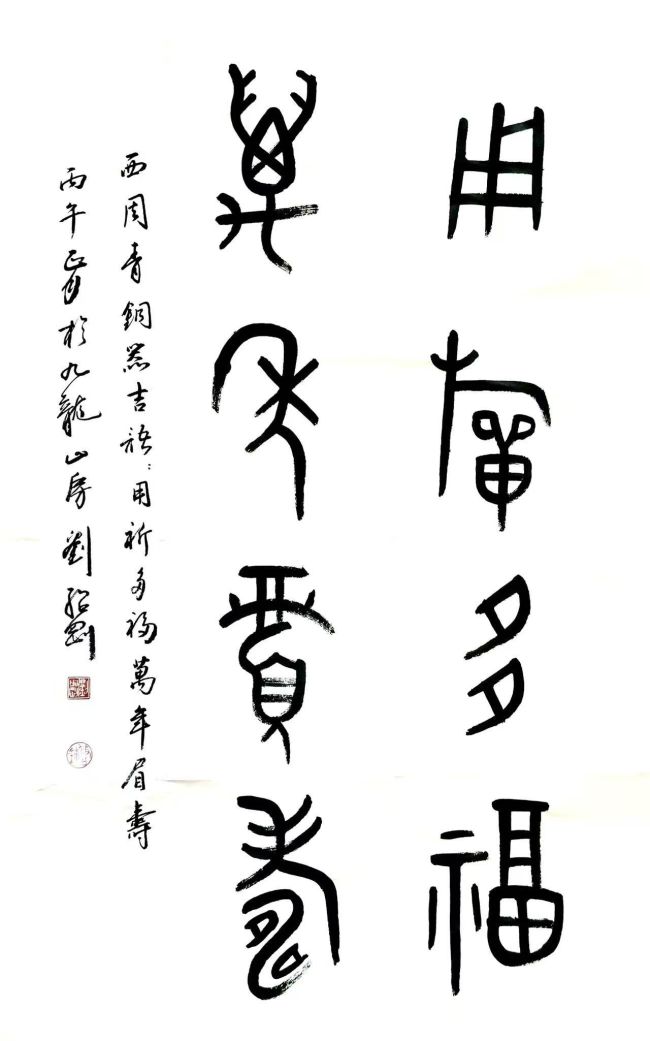 用祈多福
萬年眉壽
西周青銅器吉語：用祈多福萬年眉壽
丙午正月於九龍山房劉紹剛